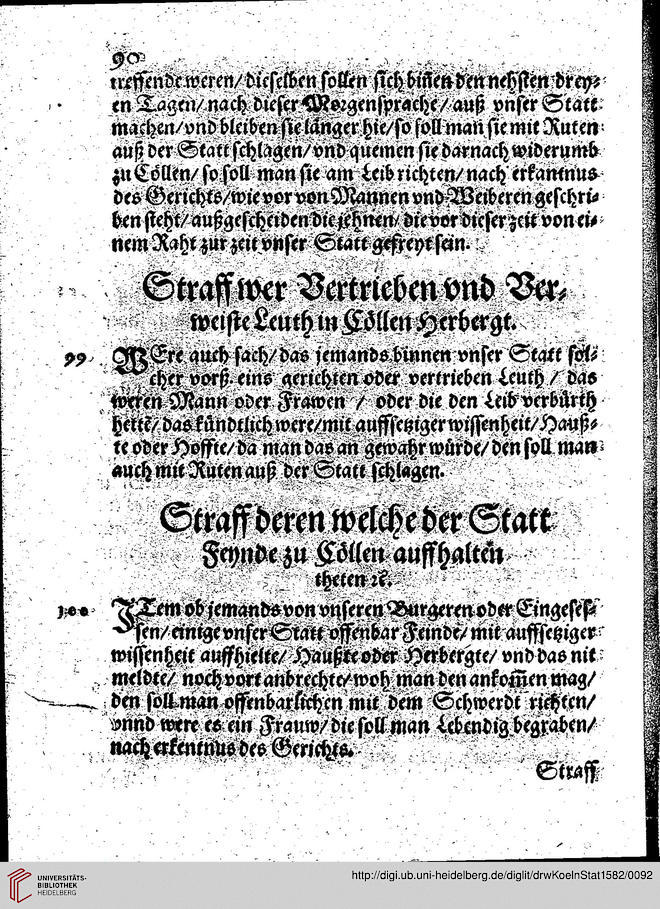 90
treffende weren/ dieselben sollen sich biñen den nehsten drey⸗
en Tagen/ nach dieser Morgensprache/ auß vnser Statt
machen/ vnd bleiben sie länger hie/ so soll man sie mit Ruten
auß der Statt schlagen/ vnd quemen sie darnach widerumb
zu Cöllen/ so soll man sie am Leib richten/ nach erkantnus
des Gerichts/ wie vor von Mannen vnd Weiberen geschri⸗
ben steht/ außgescheiden die jehnen/ die vor dieser zeit von ei⸗
nem Raht zur zeit vnser Statt gefreyt sein.
Straff wer Vertrieben vnd Ver⸗
weiste Leuth in Cöllen Herbergt.
99 WEre auch sach/ das jemands binnen vnser Statt sol⸗
cher vorß. eins gerichten oder vertrieben Leuth / das
weren Mann oder Frawen / oder die den Leib verbürth
hettē/ das kündtlich were/ mit auffsetziger wissenheit/ Hauß⸗
te oder Hoffte/ da man das an gewahr würde/ den soll man
auch mit Ruten auß der Statt schlagen.
Straff deren welche der Statt
Feynde zu Cöllen auffhalten
theten ꝛc.
100 ITem ob jemands von vnseren Burgeren oder Eingeses⸗
sen/ einige vnser Statt offenbar Feinde/ mit auffsetziger
wissenheit auffhielte/ Haußte oder Herbergte/ vnd das nit
meldte/ noch vort anbrechte/ woh man den ankom̃en mag/
den soll man offenbarlichen mit dem Schwerdt richten/
vnnd were es ein Frauw/ die soll man Lebendig begraben/
nach erkentnus des Gerichts.
Straff
UNIVERSITÄTS-
BIBLIOTHEK
HEIDELBERG
http://digi.ub.uni-heidelberg.de/diglit/drwKoelnStat1582/0092